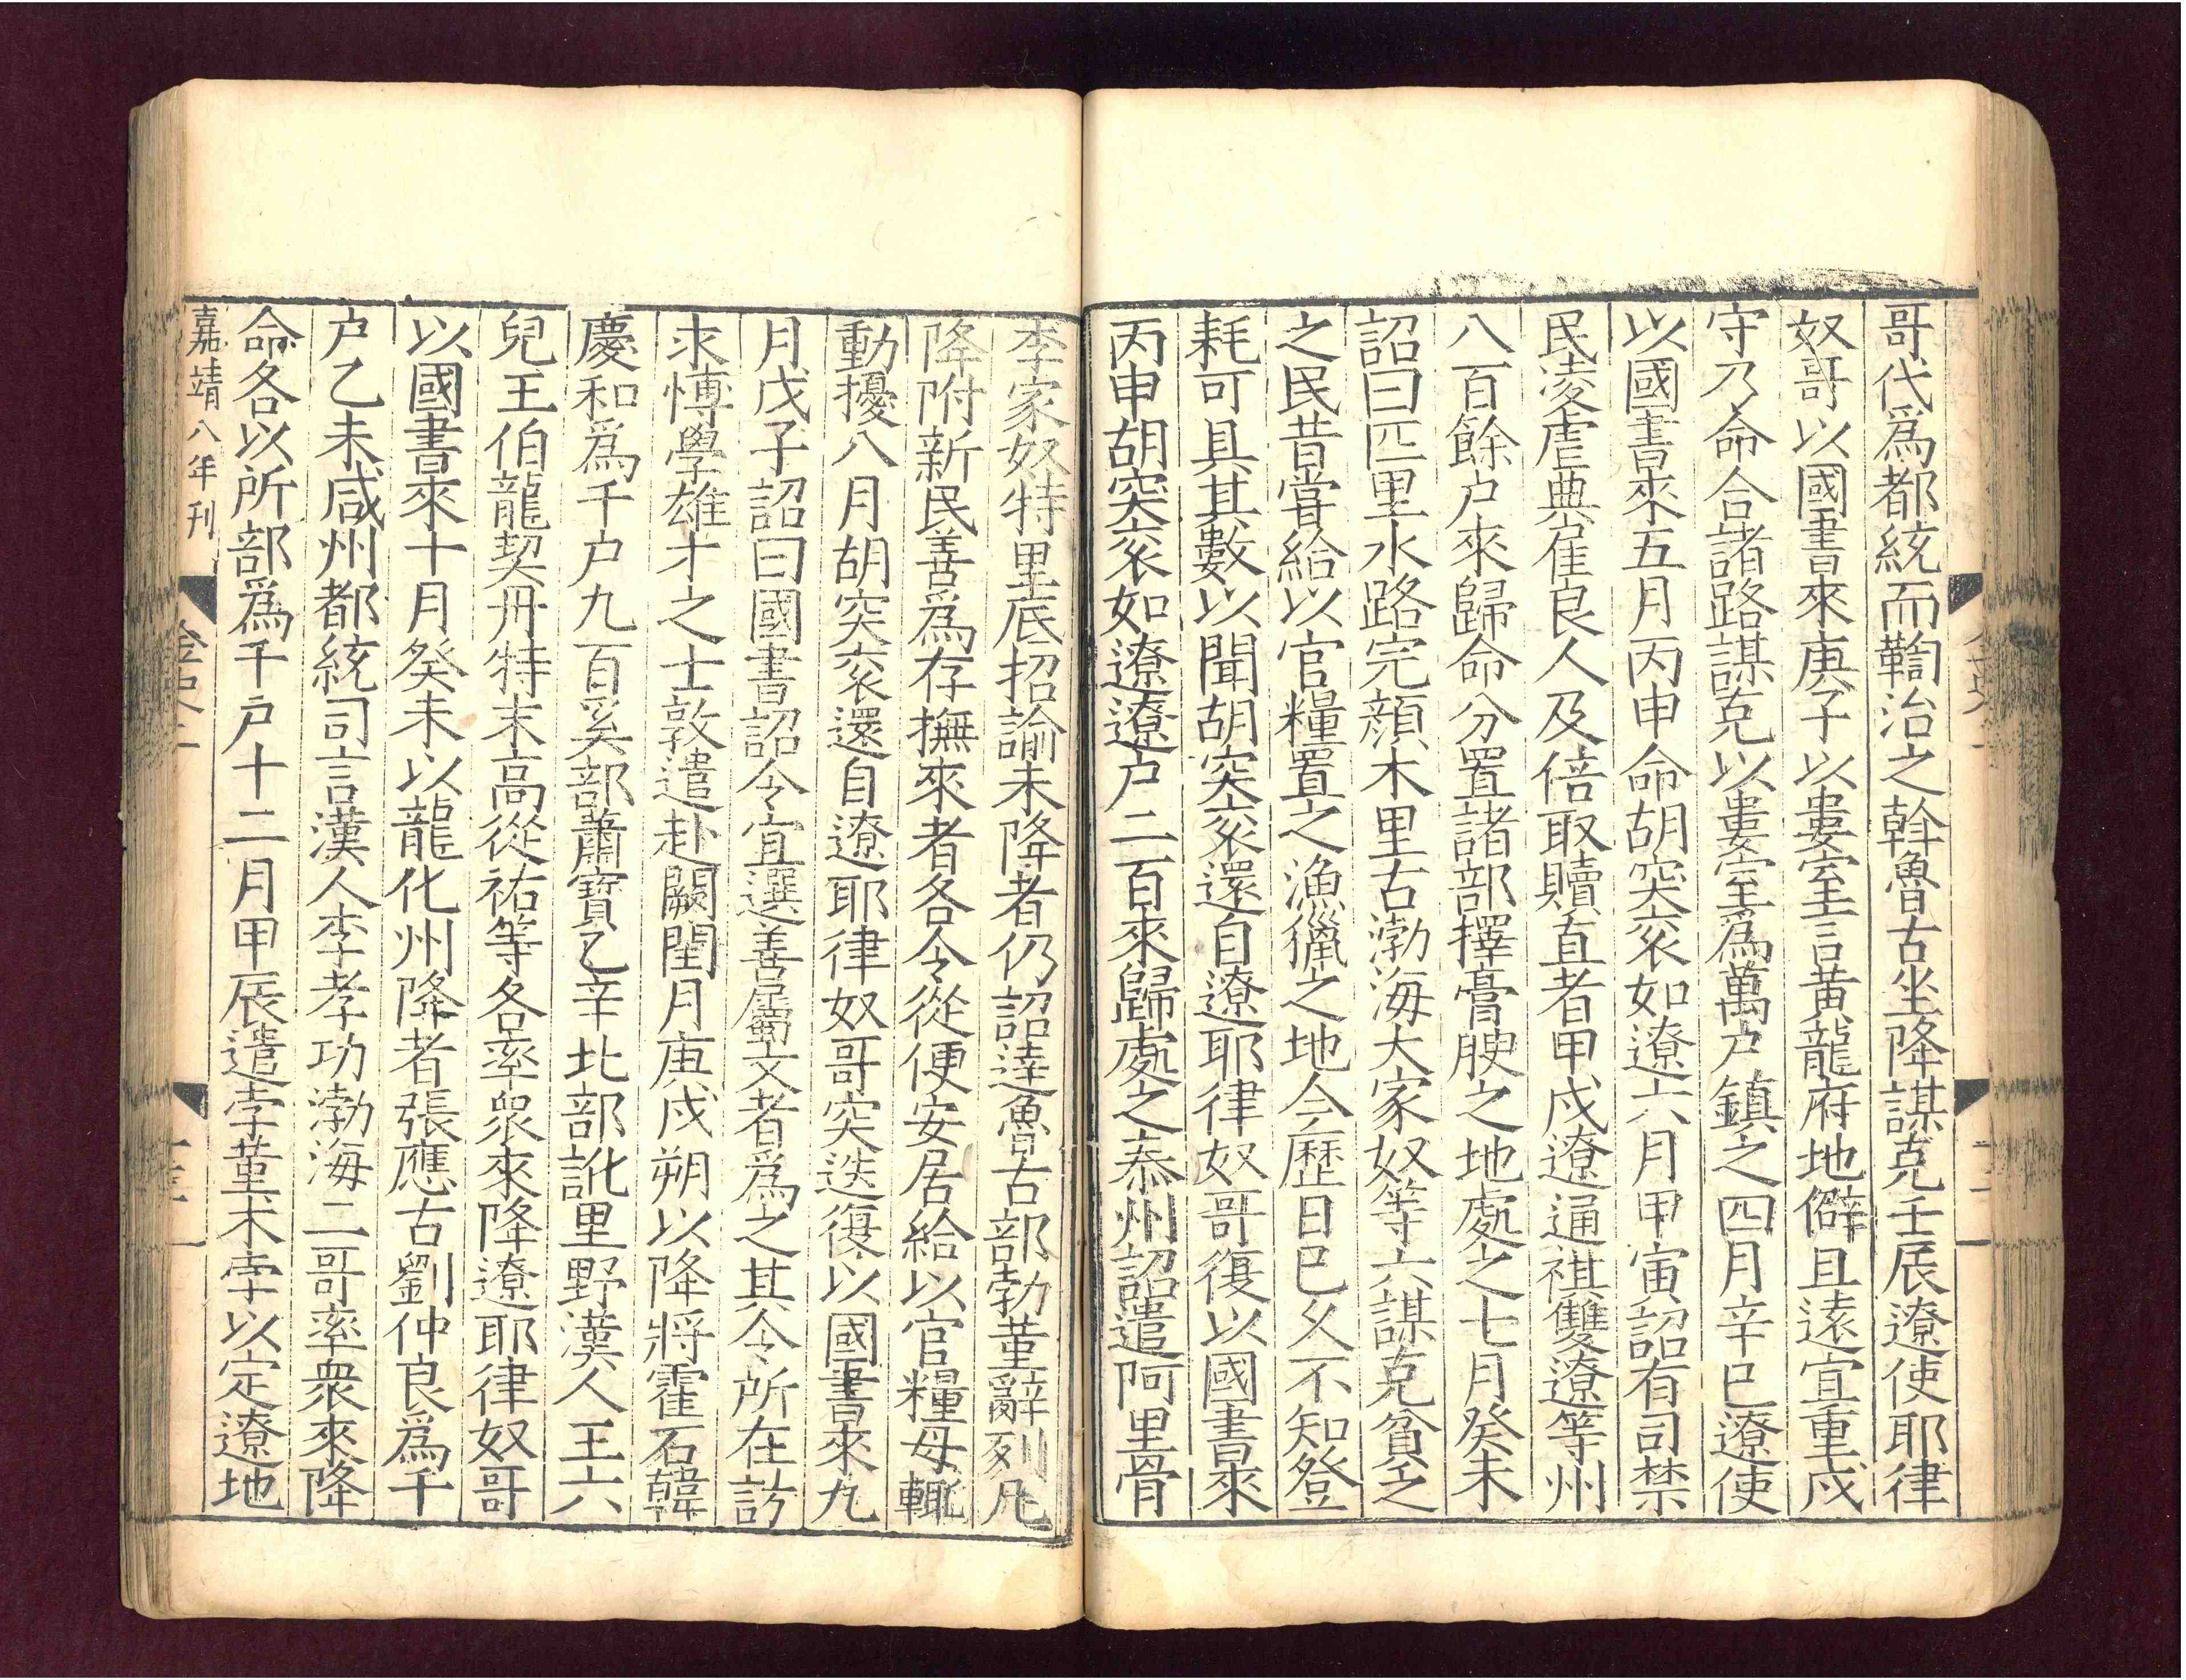 哥代爲都統而鞫治之斡魯古坐降謀克壬辰遼使耶律
奴哥以國書來庚子以婁室言黃龍府地僻且遠宜重戍
守乃命合諸路謀克以婁室爲萬户鎮之四月辛巳遼使
以國書來五月丙申命胡突衮如遼六月甲寅詔有司禁
民凌虐典雇良人及倍取贖直者甲戌遼通祺雙遼等州
八百餘户來歸命分置諸部擇膏腴之地處之七月癸未
詔曰匹里水路完顔术里古渤海大家奴等六謀克貧乏
之民昔嘗給以官糧置之漁獵之地今歷日已久不知登
耗可具其數以聞胡突衮還自遼耶律奴哥復以國書來
丙申胡突衮如遼遼户二百來歸處之泰州詔遣阿里骨
李家奴特里底招諭未降者仍詔達魯古部勃堇辭列凡
降附新民善爲存撫來者各令從便安居給以官糧毋輒
動擾八月胡突衮還自遼耶律奴哥突迭復以國書來九
月戊子詔曰國書詔令宜選善屬文者爲之其令所在訪
求博學雄才之士敦遣赴闕閏月庚戌朔以降將霍石韓
慶和爲千户九百奚部蕭寶乙辛北部訛里野漢人王六
兒王伯龍契丹特末高從祐等各率衆來降遼耶律奴哥
以國書來十月癸未以龍化州降者張應古劉仲良爲千
户乙未咸州都統司言漢人李孝功渤海二哥率衆來降
命各以所部爲千户十二月甲辰遣孛堇术孛以定遼地
嘉靖八年刊
金史二